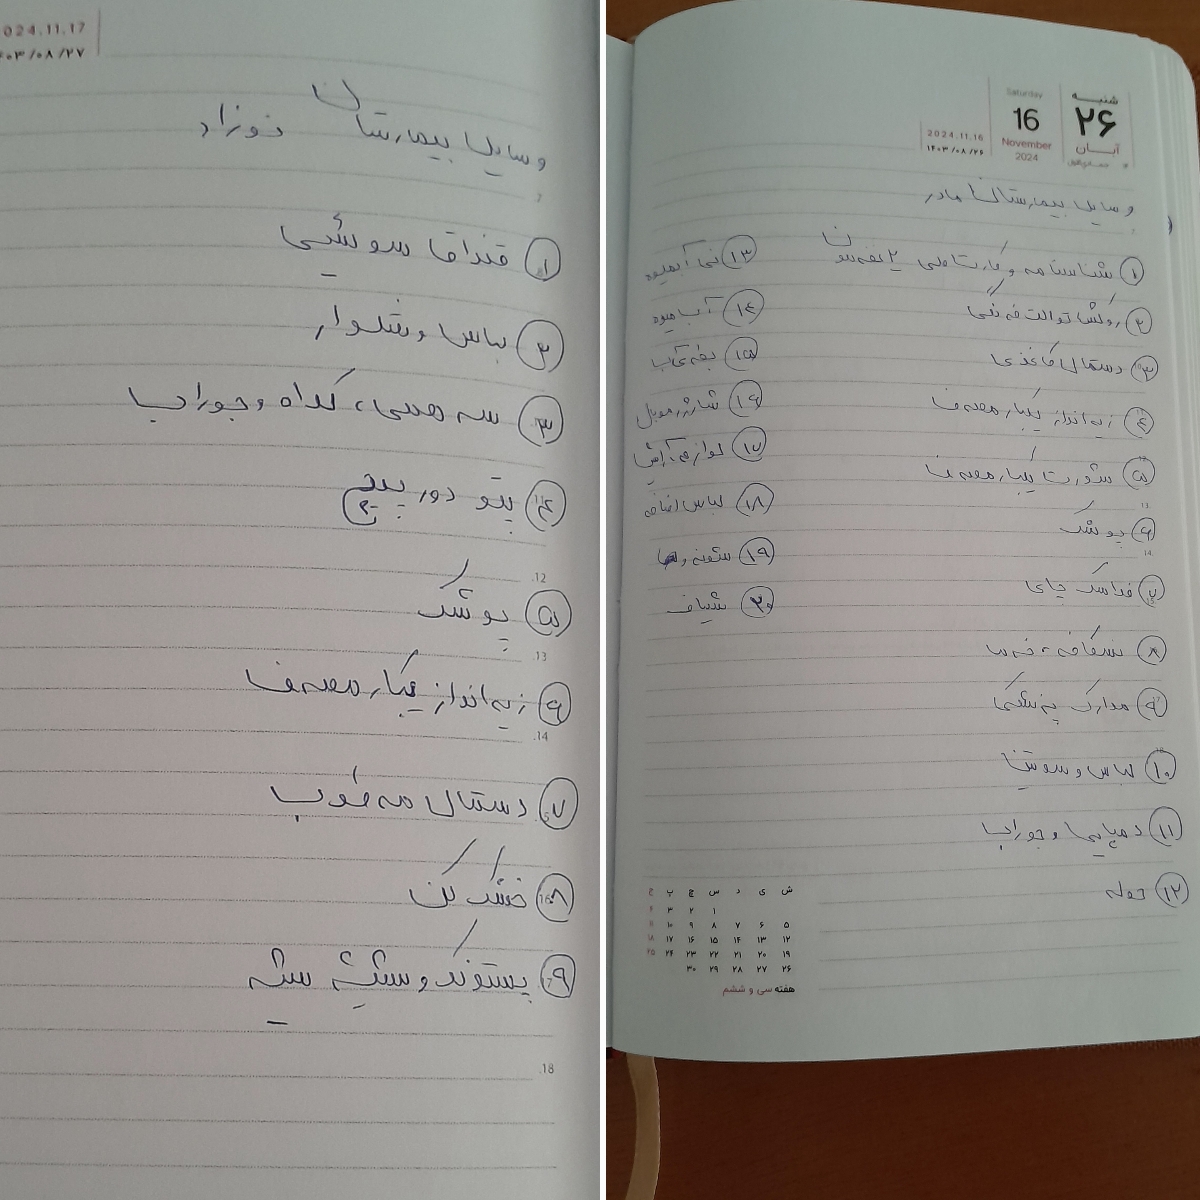 2024.11.17
۱۴۰۳/۰۸/۲۷
وسایل بیمارستان نوزاد
۱ قنداق سوئیسی
۲ لباس و شلوار
۳ سه همی، کلاه و جوراب
۴ پتو دورپیچ
۵ پوشک
۶ زیرانداز یکبار مصرف
۷ دستمال مرطوب
۸ خشک کن
۹ پستونک و شیشه شیر
12
13
14
18
شنبه
۲۶
آبان
Saturday
16
November
2024
2024.11.16
۱۴۰۳/۰۸/۲۶
وسایل بیمارستان مادر
۱ شناسنامه و کارت ملی ۲ نفرمون
۲ روکش توالت فرنگی
۳ دستمال کاغذی
۴ زیرانداز یکبار مصرف
۵ شورت یکبار مصرف
۶ پوشک
۷ فلاسک چای
۸ نسکافه، خرما
۹ مدارک پزشکی
۱۰ لباس و سوتین
۱۱ دمپایی و جوراب
۱۲ حوله
۱۳ نی آبمیوه
۱۴ آب میوه
۱۵
۱۶ شارژر موبایل
۱۷ لوازم آرایش
۱۸ لباس اضافه
۱۹ شونه
۲۰ شیاف
ش ی د س چ پ ج
۱ ۲ ۳ ۴
۵ ۶ ۷ ۸ ۹ ۱۰ ۱۱
۱۲ ۱۳ ۱۴ ۱۵ ۱۶ ۱۷ ۱۸
۱۹ ۲۰ ۲۱ ۲۲ ۲۳ ۲۴ ۲۵
۲۶ ۲۷ ۲۸ ۲۹ ۳۰
هفته سی و ششم